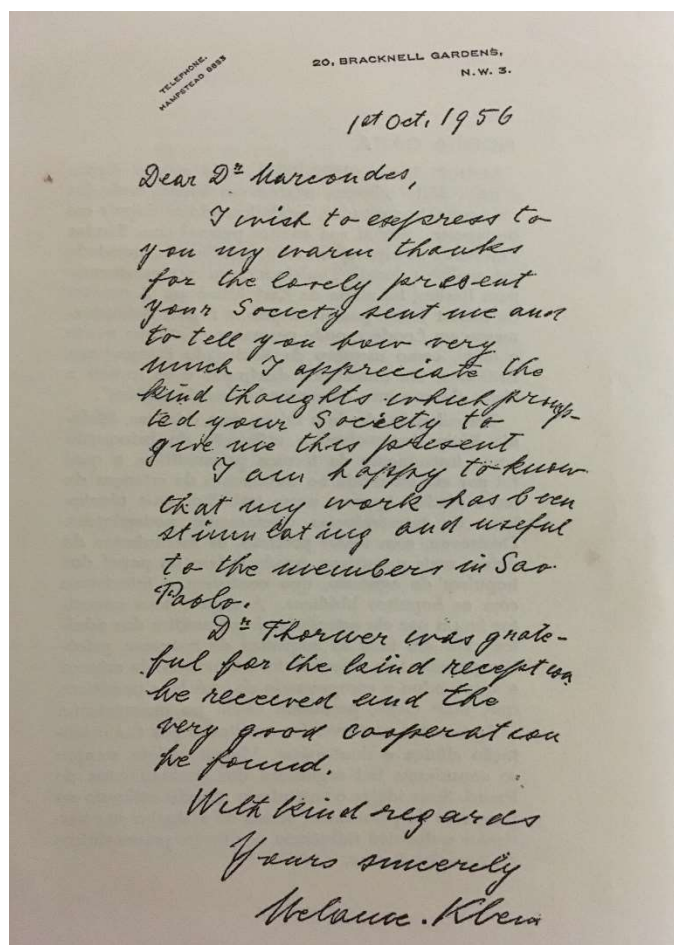 TELEPHONE.
HAMPSTEAD 8893
20, BRACKNELL GARDENS,
N.W. 3.
1st Oct. 1956
Dear Dr Marcondes,
I wish to express to
you my warm thanks
for the lovely present
your Society sent me and
to tell you how very
much I appreciate the
kind thoughts which promp-
ted your Society to
give me this present
I am happy to know
that my work has been
stimulating and useful
to the members in Sao
Paolo.
Dr Thorner was grate-
ful for the kind reception
he received and the
very good cooperation
he found.
With kind regards
Yours sincerely
Melanie Klein